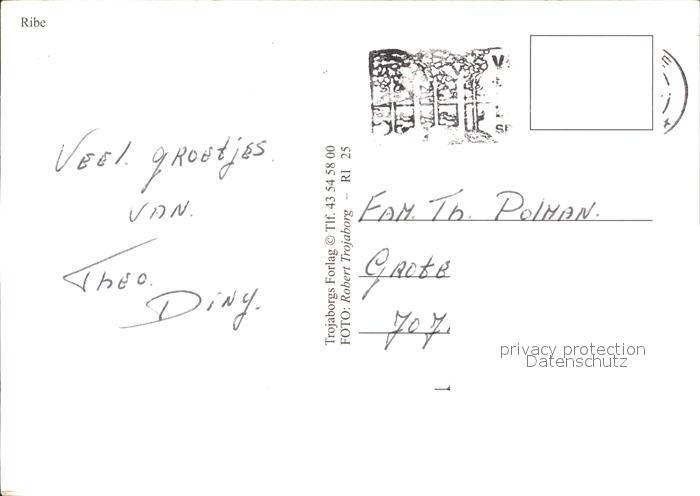 Ribe
Veel groetjes
van.
Theo.
Diny.
Trojaborgs Forlag © Tlf. 43 54 58 00
FOTO: Robert Trojaborg – RI 25
Fam. Th. Polman.
Grote
707.
privacy protection
Datenschutz